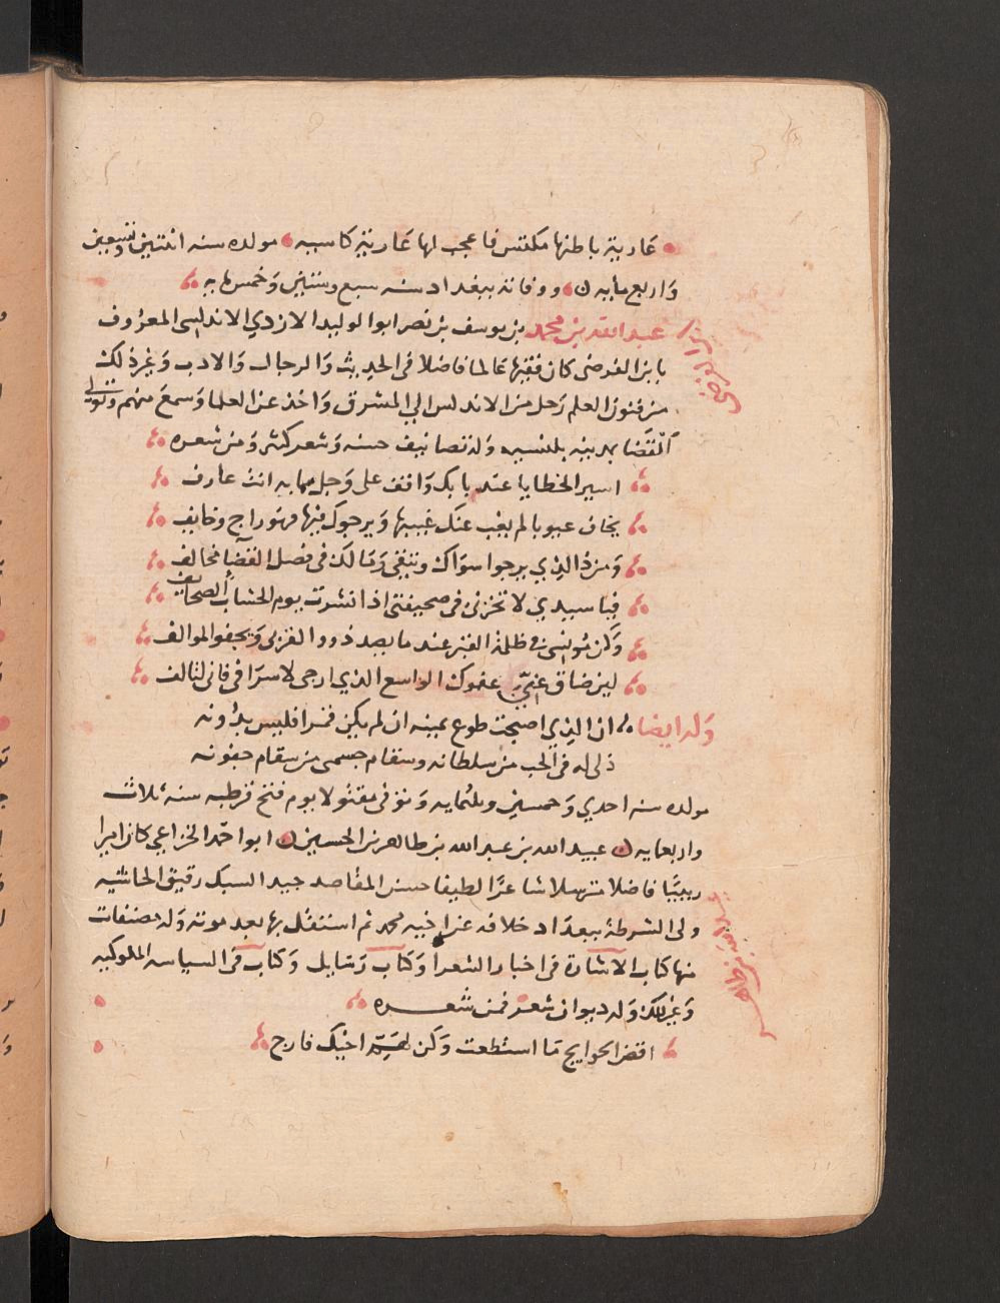 عارية باطنها مكتس فاعجب لها عارية كاسيه مولده سنه اثنتين وتسعين
واربع مايه ووفاته ببغداد سنه سبع وستين وخمس مايه
عبد الله بن محمد بن يوسف بن نصر ابو الوليد الازدي الاندلسي المعروف
بابن الفرضى كان فقيها عالما فاضلا فى الحديث والرجال والادب وغير ذلك
من فنون العلم رحل من الاندلس الي المشرق واخذ عن العلما وسمع منهم وتولى
القضا بمدينه بلنسيه وله تصانيف حسنه وشعر كثير ومن شعره
اسير الخطايا عند بابك واقف على وجل مما به انت عارف
يخاف عيوبا لم يغب عنك غيبها ويرجوك فيها فهو راج وخايف
ومن ذا الذي يرجوا سواك ويتقى ومالك فى فصل القضا مخالف
فيا سيدي لا تخزنى فى صحيفتى اذا نشرت يوم الحساب الصحايف
وكن مونسى فى ظلمة القبر عند ما يصد ذووا القربى ويجفو الموالف
لين ضاق عنى عفوك الواسع الذي ارجى لاسرافى فانى لتالف
وله ايضا ان الذي اصبحت طوع يمينه ان لم يكن قمرا فليس بدونه
ذلى له فى الحب من سلطانه وسقام جسمى من سقام جفونه
مولده سنه احدي وخمسين وثلثمايه وتوفى مقتولا يوم فتح قرطبه سنه ثلاث
واربعمايه عبيد الله بن عبد الله بن طاهر بن الحسين ابو احمد الخزاعي كان اميرا
رييسا فاضلا مترسلا شاعرا لطيفا حسن المقاصد جيد السبك رقيق الحاشيه
ولى الشرطة ببغداد خلافه عن اخيه محمد ثم استقل بها بعد موته وله مصنفات
منها كتاب الاشارة فى اخبار الشعرا وكتاب رسايل وكتاب فى السياسه الملوكيه
وغير ذلك وله ديوان شعر فمن شعره
اقض الحوايج ما استطعت وكن لهم اخيك فارج
ابن الفرضى